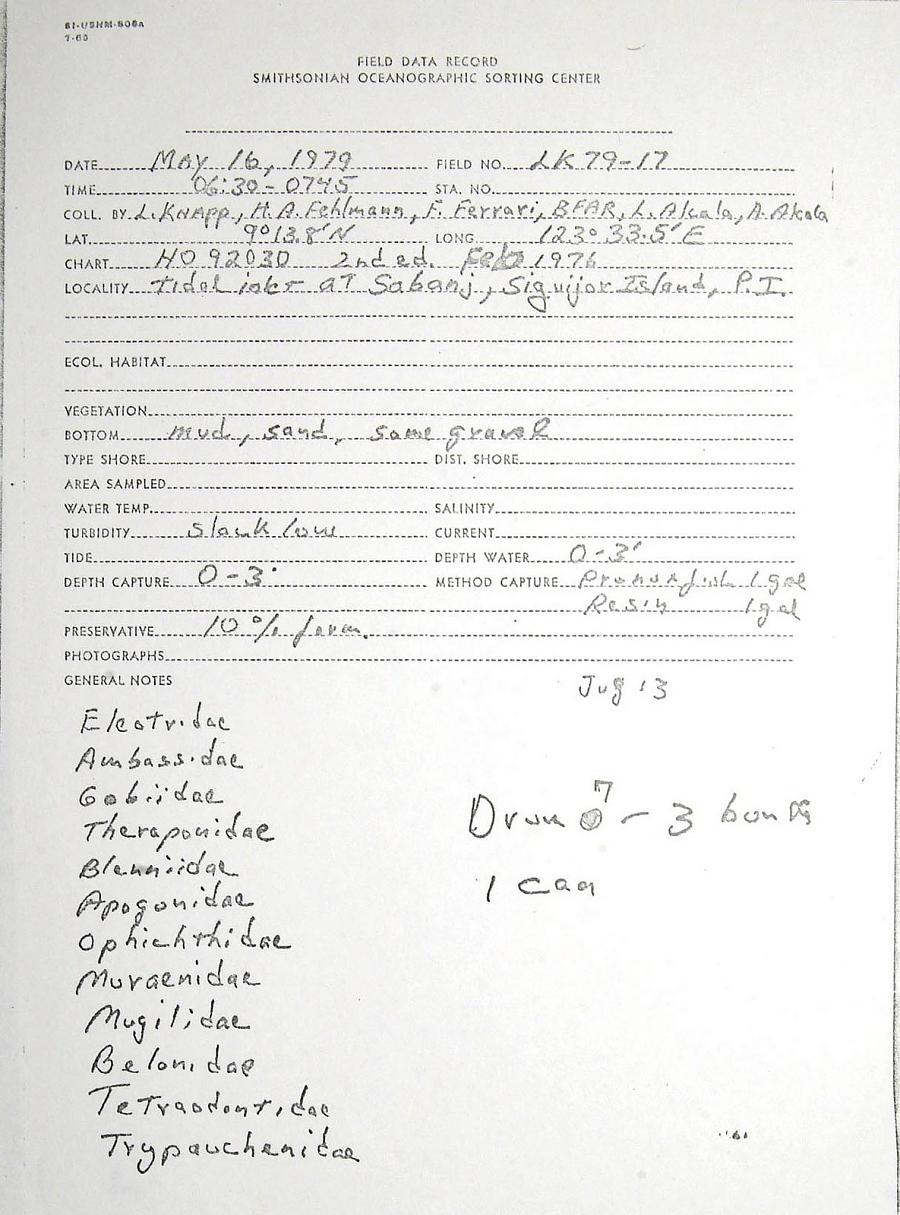 SI-USNM-808A
7-65
FIELD DATA RECORD
SMITHSONIAN OCEANOGRAPHIC SORTING CENTER
DATE May 16, 1979 FIELD NO. LK 79-17
TIME 06:30-0745 STA. NO.
COLL. BY L. Knapp, H. A. Fehlmann, F. Ferrari, BFAR, L. Alcala, A. Alcala
LAT. 9° 13.8' N LONG. 123° 33.5' E
CHART HO 92030 2nd ed. Feb 1976
LOCALITY tidal inlet at Sabang, Siquijor Island, P.I.
ECOL. HABITAT
VEGETATION
BOTTOM mud, sand, some gravel
TYPE SHORE DIST. SHORE
AREA SAMPLED
WATER TEMP. SALINITY
TURBIDITY slack low CURRENT
TIDE DEPTH WATER 0-3'
DEPTH CAPTURE 0-3' METHOD CAPTURE Pronoxfish 1 gal
Resin 1 gal
PRESERVATIVE 10% form.
PHOTOGRAPHS
GENERAL NOTES
Jug 13
Eleotridae
Ambassidae
Gobiidae
Theraponidae
Blenniidae
Apogonidae
Ophichthidae
Muraenidae
Mugilidae
Belonidae
Tetraodontidae
Trypauchenidae
7
Drum - 3
1 can